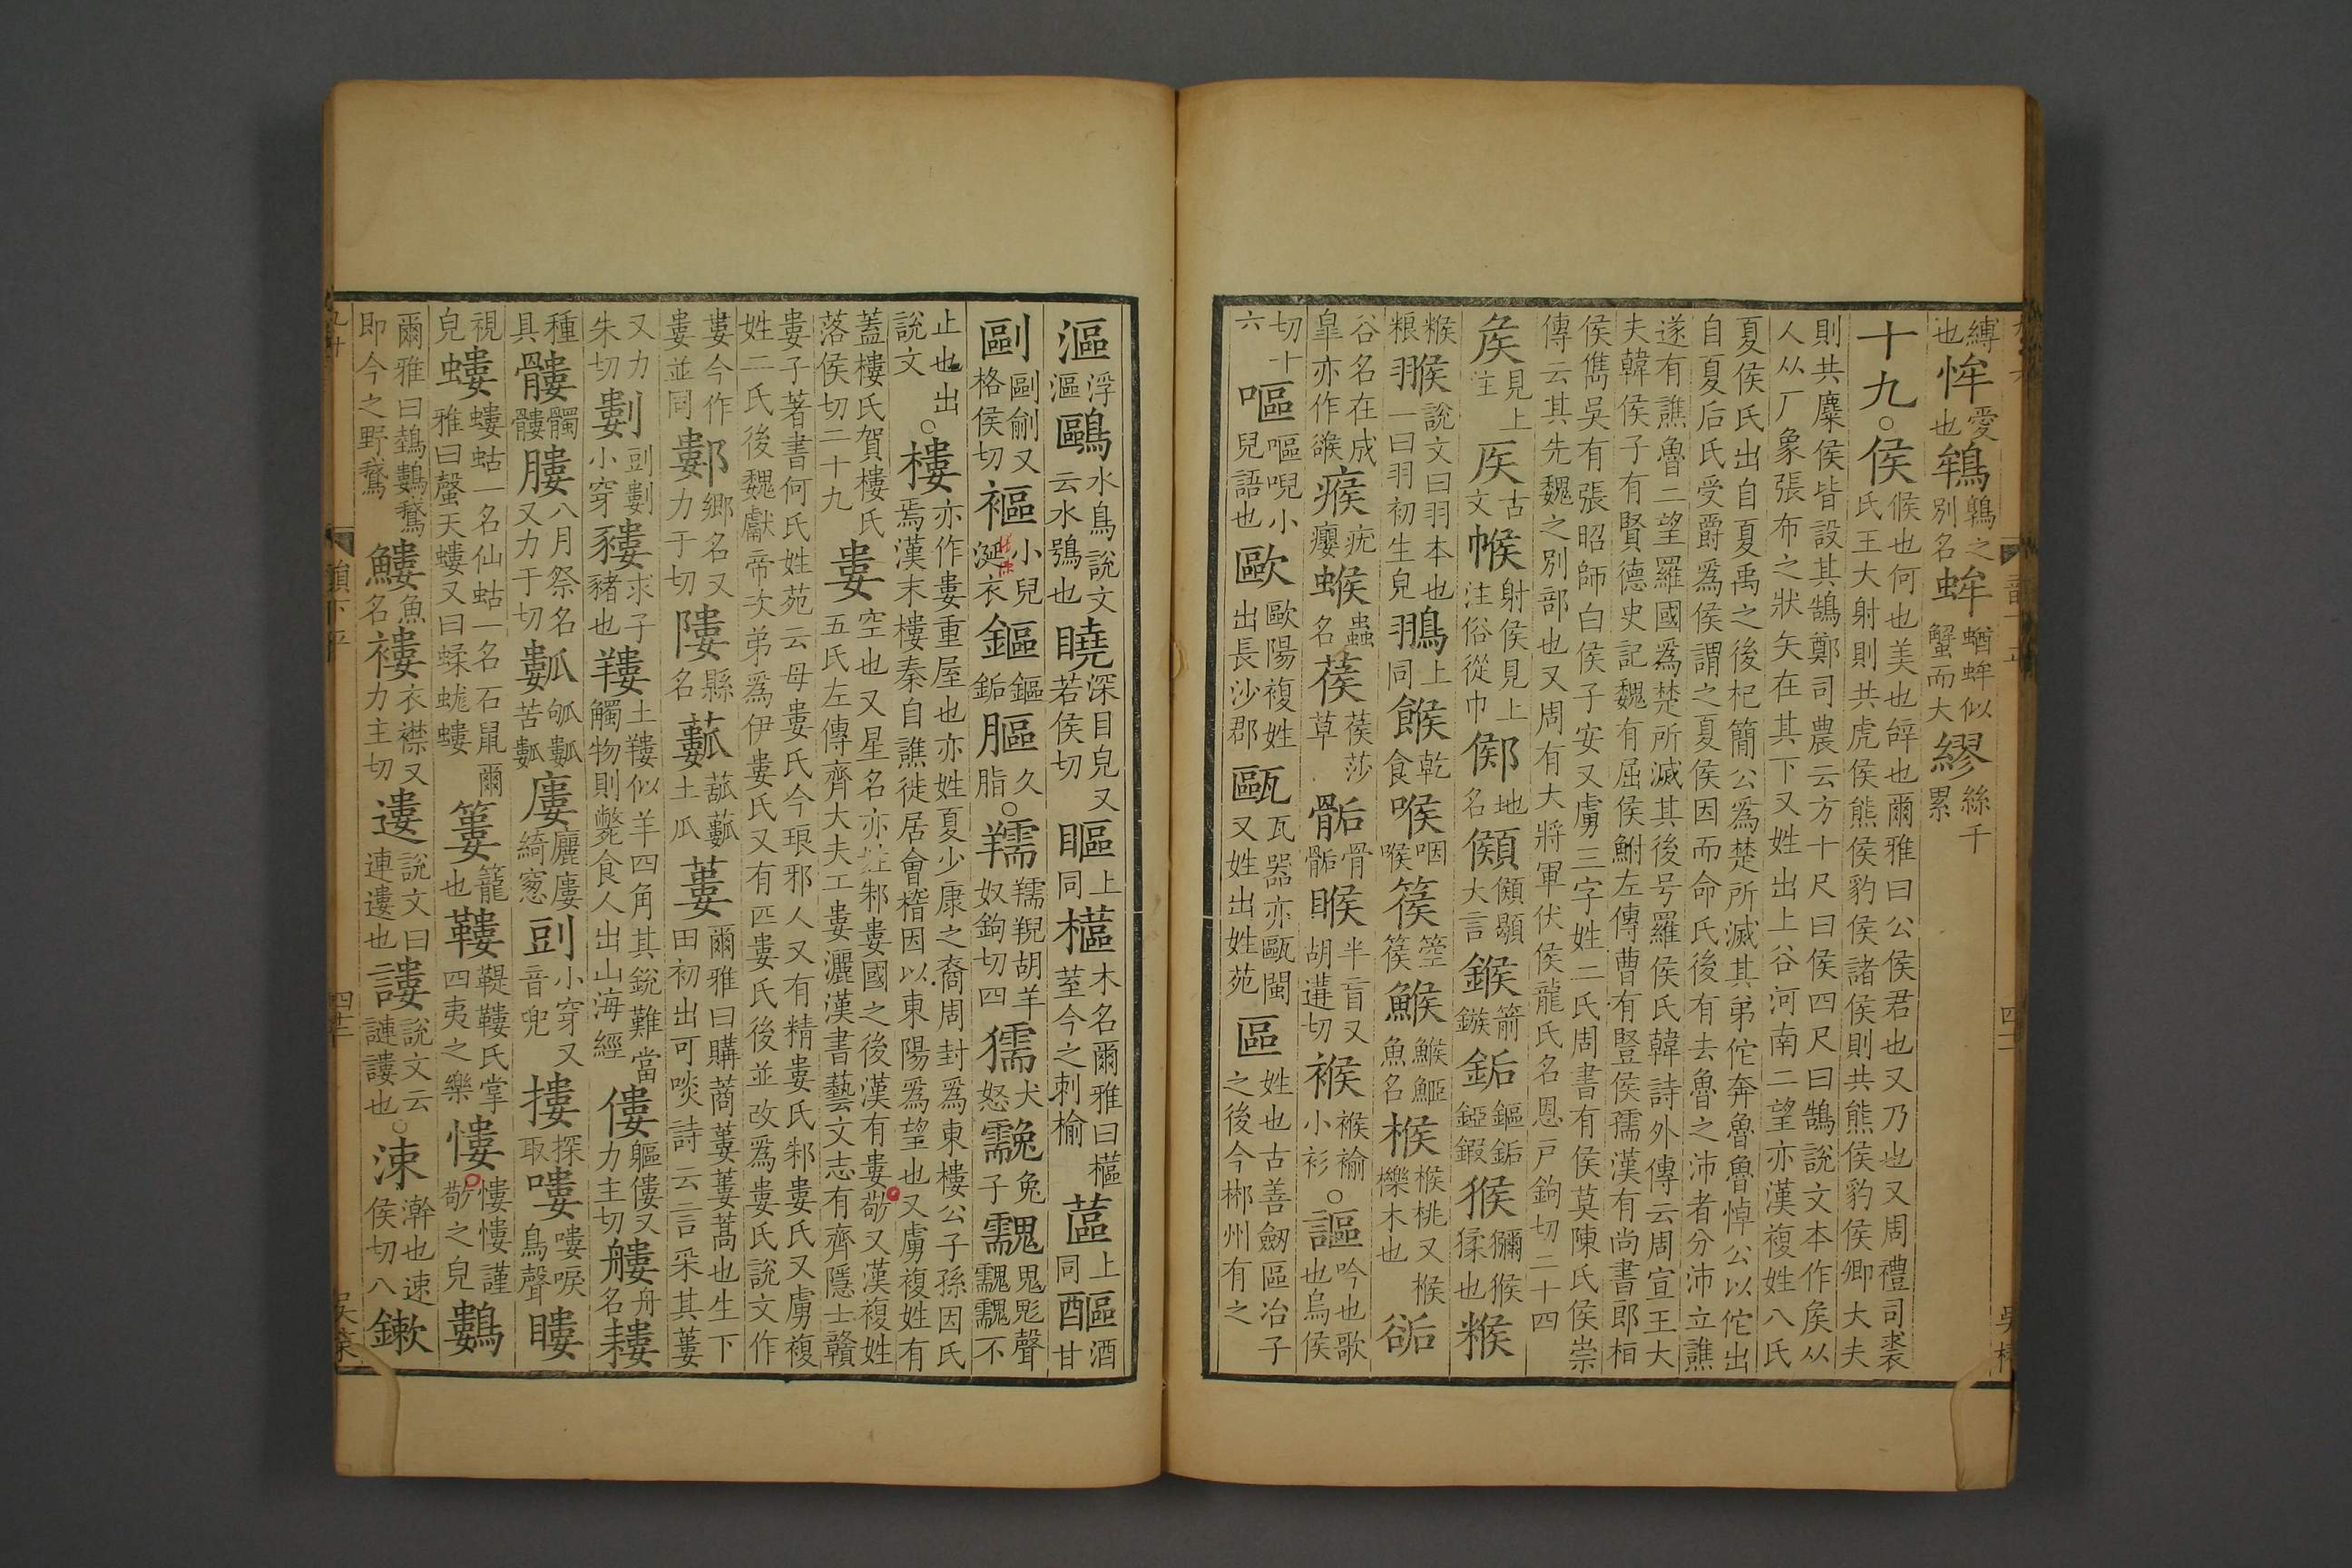 縛也恈愛也鴾鴾之別名蛑蝤蛑似蟹而大繆絲千累
十九○侯候也何也美也辝也爾雅曰公侯君也又乃也又周禮司裘氏王大射則共虎侯熊侯豹侯諸侯則共熊侯豹侯卿大夫
則共麋侯皆設其鵠鄭司農云方十尺曰侯四尺曰鵠說文本作矦从人从厂象張布之狀矢在其下又姓出上谷河南二望亦漢複姓八氏
夏侯氏出自夏禹之後杞簡公爲楚所滅其弟佗奔魯魯悼公以佗出自夏后氏受爵爲侯謂之夏侯因而命氏後有去魯之沛者分沛立譙
遂有譙魯二望羅國爲楚所滅其後号羅侯氏韓詩外傳云周宣王大夫韓侯子有賢德史記魏有屈侯鮒左傳曹有豎侯獳漢有尚書郎栢
侯儁吳有張昭師白侯子安又虜三字姓二氏周書有侯莫陳氏侯崇傳云其先魏之別部也又周有大將軍伏侯龍氏名恩戶鉤切二十四
矦見上注𥎦古文帿射侯見上注俗從巾鄇地名𩔋𩔋顋大言鍭箭鏃銗鏂銗錏鍜猴獼猴猱也糇
糇粮翭說文曰羽本也一曰羽初生皃鶘上同餱乾食喉咽喉篌箜篌鯸鯸鮔魚名㮢㮢桃又㮢櫟木也𧮶
谷名在成皐亦作𧮶瘊疣癭蝬蟲名葔葔莎草骺骨骺睺半盲又胡遘切䙈䙈褕小衫○謳吟也歌也烏侯
切十六嘔嘔唲小兒語也歐歐陽複姓出長沙郡甌瓦器亦甌閩又姓出姓苑區姓也古善劒區冶子之後今郴州有之
漚浮漚鷗水鳥說文云水鴞也𥈊深目皃又若侯切瞘上同櫙木名爾雅曰櫙荎今之刺榆蓲上同醧酒甘
剾剾剅又格侯切褔小兒涎衣鏂鏂銗膒久脂○羺羺䍲胡羊奴鉤切四獳犬怒㕢兔子䰰鬼鬽聲䰰䰰不
止也出說文○樓亦作婁重屋也亦姓夏少康之裔周封爲東樓公子孫因氏焉漢末樓秦自譙徙居會稽因以東陽爲望也又虜複姓有
蓋樓氏賀樓氏落侯切二十九婁空也又星名亦姓邾婁國之後漢有婁敬又漢複姓五氏左傳齊大夫工婁灑漢書藝文志有齊隱士贛
婁子著書何氏姓苑云母婁氏今琅邪人又有精婁氏邾婁氏又虜複姓二氏後魏獻帝次弟爲伊婁氏又有匹婁氏後並改爲婁氏說文作
婁今作婁並同鄻鄉名又力于切陋縣名蔞土瓜蔞爾雅曰購蔏蔞蔞蒿也生下田初出可啖詩云言采其蔞
又力朱切劃剅劃小穿貗求子豬也䍣土䍣似羊四角其銳難當觸物則斃食人出山海經僂軀僂又力主切艛舟名耬
種具髏髑髏膢八月祭名又力于切瓤瓠瓤苦瓤廔廲廔綺窻剅小穿又音兜摟探取嘍嘍唳鳥聲瞜
視皃螻螻蛄一名仙蛄一名石鼠爾雅曰螜天螻又曰蝚蛖螻簍籠也鞻鞮鞻氏掌四夷之樂慺慺慺謹敬之皃鷜
爾雅曰鵱鷜鵞即今之野鵞鱳魚名褸衣襟又力主切遱說文曰連遱也謱說文云謰謱也○涑澣也速侯切八鏉